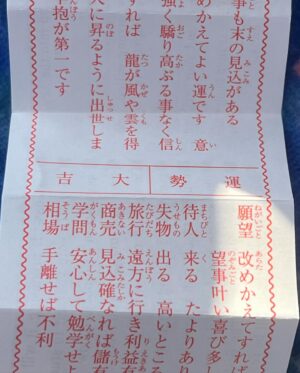 事も末の見込がある
めかえてよい運です 意
強く驕り高ぶる事なく信
すれば 龍が風や雲を得
天に昇るように出世しま
辛抱が第一です
運勢 大吉
願望 改めかえてすれば
望事叶い喜び多し
待人 来る たよりあり
失物 出る 高いところ
旅行 遠方に行き利益有
商売 見込確なれば儲有
学問 安心して勉学せよ
相場 手離せば不利